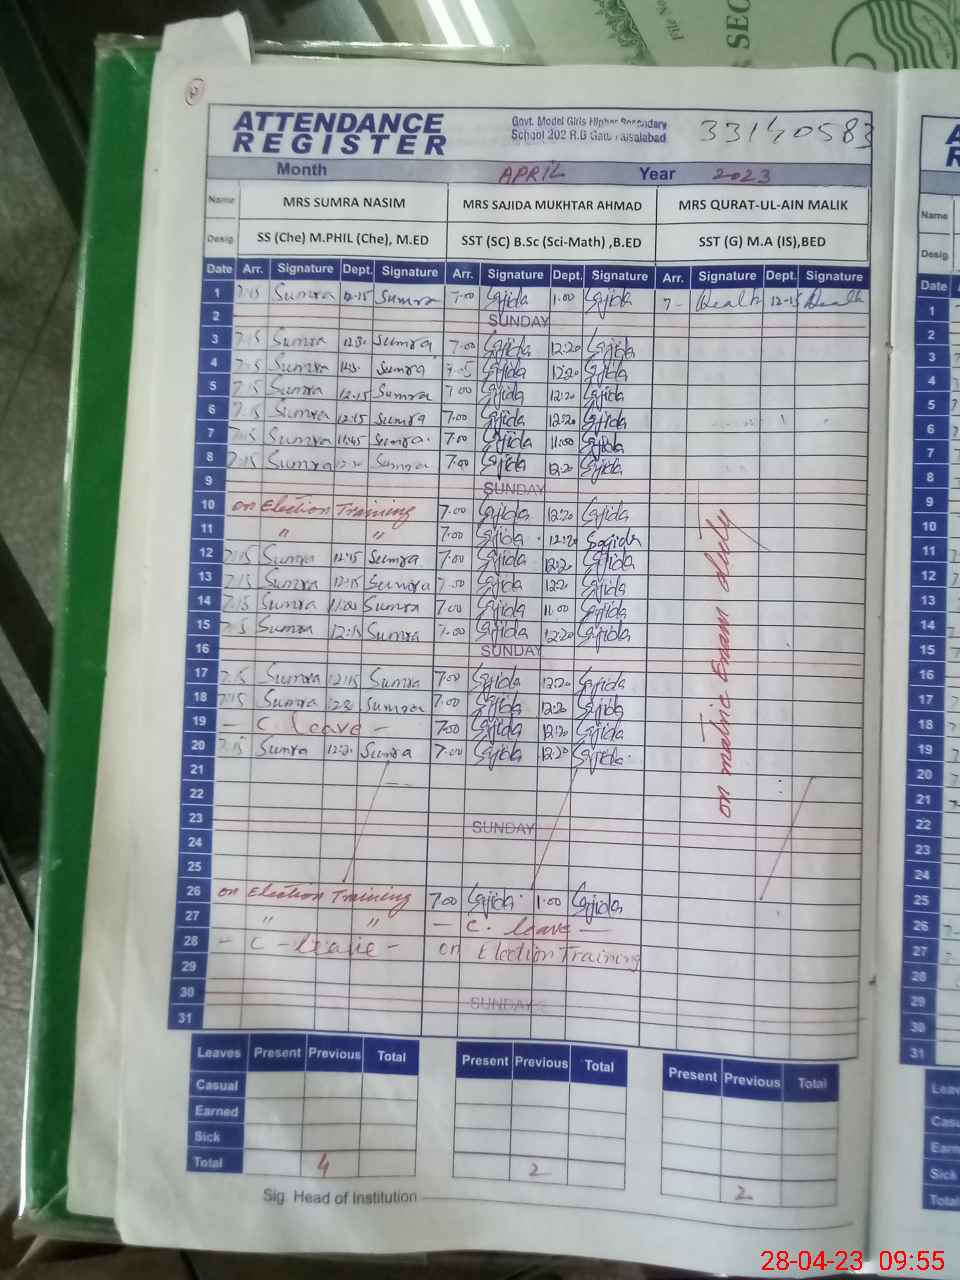 ATTENDANCE
REGISTER
Govt. Model Girls Higher Secondary
School 202 R.B Faisalabad
33140583
Month APRIL Year 2023
Name MRS SUMRA NASIM MRS SAJIDA MUKHTAR AHMAD MRS QURAT-UL-AIN MALIK
Desig. SS (Che) M.PHIL (Che), M.ED SST (SC) B.Sc (Sci-Math) ,B.ED SST (G) M.A (IS),BED
Date Arr. Signature Dept. Signature Arr. Signature Dept. Signature Arr. Signature Dept. Signature
1 7:15 Sumra 12-15 Sumra 7.00 Sajida 1.00 Sajida 7- 12-15
2 SUNDAY
3 7:15 Sumra Sumra 7.00 Sajida 12:20 Sajida
4 7:15 Sumra Sumra 7.05 Sajida 12:20 Sajida
5 7:15 Sumra 12:15 Sumra 7.00 Sajida 12:20 Sajida
6 7:15 Sumra 12:15 Sumra 7.00 Sajida 12:20 Sajida
7 7:15 Sumra 11:45 Sumra 7.00 Sajida 11.00 Sajida
8 7:15 Sumra Sumra 7.00 Sajida 12:20 Sajida
9 SUNDAY
10 on Election Training 7.00 Sajida 12:20 Sajida
11 " " 7.00 Sajida 12:20 Sajida
12 7:15 Sumra 12:15 Sumra 7.00 Sajida 12:20 Sajida
13 7:15 Sumra 12:15 Sumra 7.00 Sajida 12:20 Sajida
14 7:15 Sumra 11.00 Sumra 7.00 Sajida 11.00 Sajida
15 7:15 Sumra 12:15 Sumra 7.00 Sajida 12:20 Sajida
16 SUNDAY
17 7:15 Sumra 12:15 Sumra 7.00 Sajida 12:20 Sajida
18 7:15 Sumra Sumra 7.00 Sajida 12:20 Sajida
19 - C. leave - 7.00 Sajida 12:20 Sajida
20 7:15 Sumra 12:20 Sumra 7.00 Sajida 12:20 Sajida
on matric Exam duty
21
22
23 SUNDAY
24
25
26 on Election Training 7.00 Sajida 1.00 Sajida
27 " " - C. leave -
28 - C - leave - on Election Training
29
30 SUNDAY
31
Leaves Present Previous Total Present Previous Total Present Previous Total
Casual
Earned
Sick
Total 4 2 2
Sig. Head of Institution
28-04-23 09:55